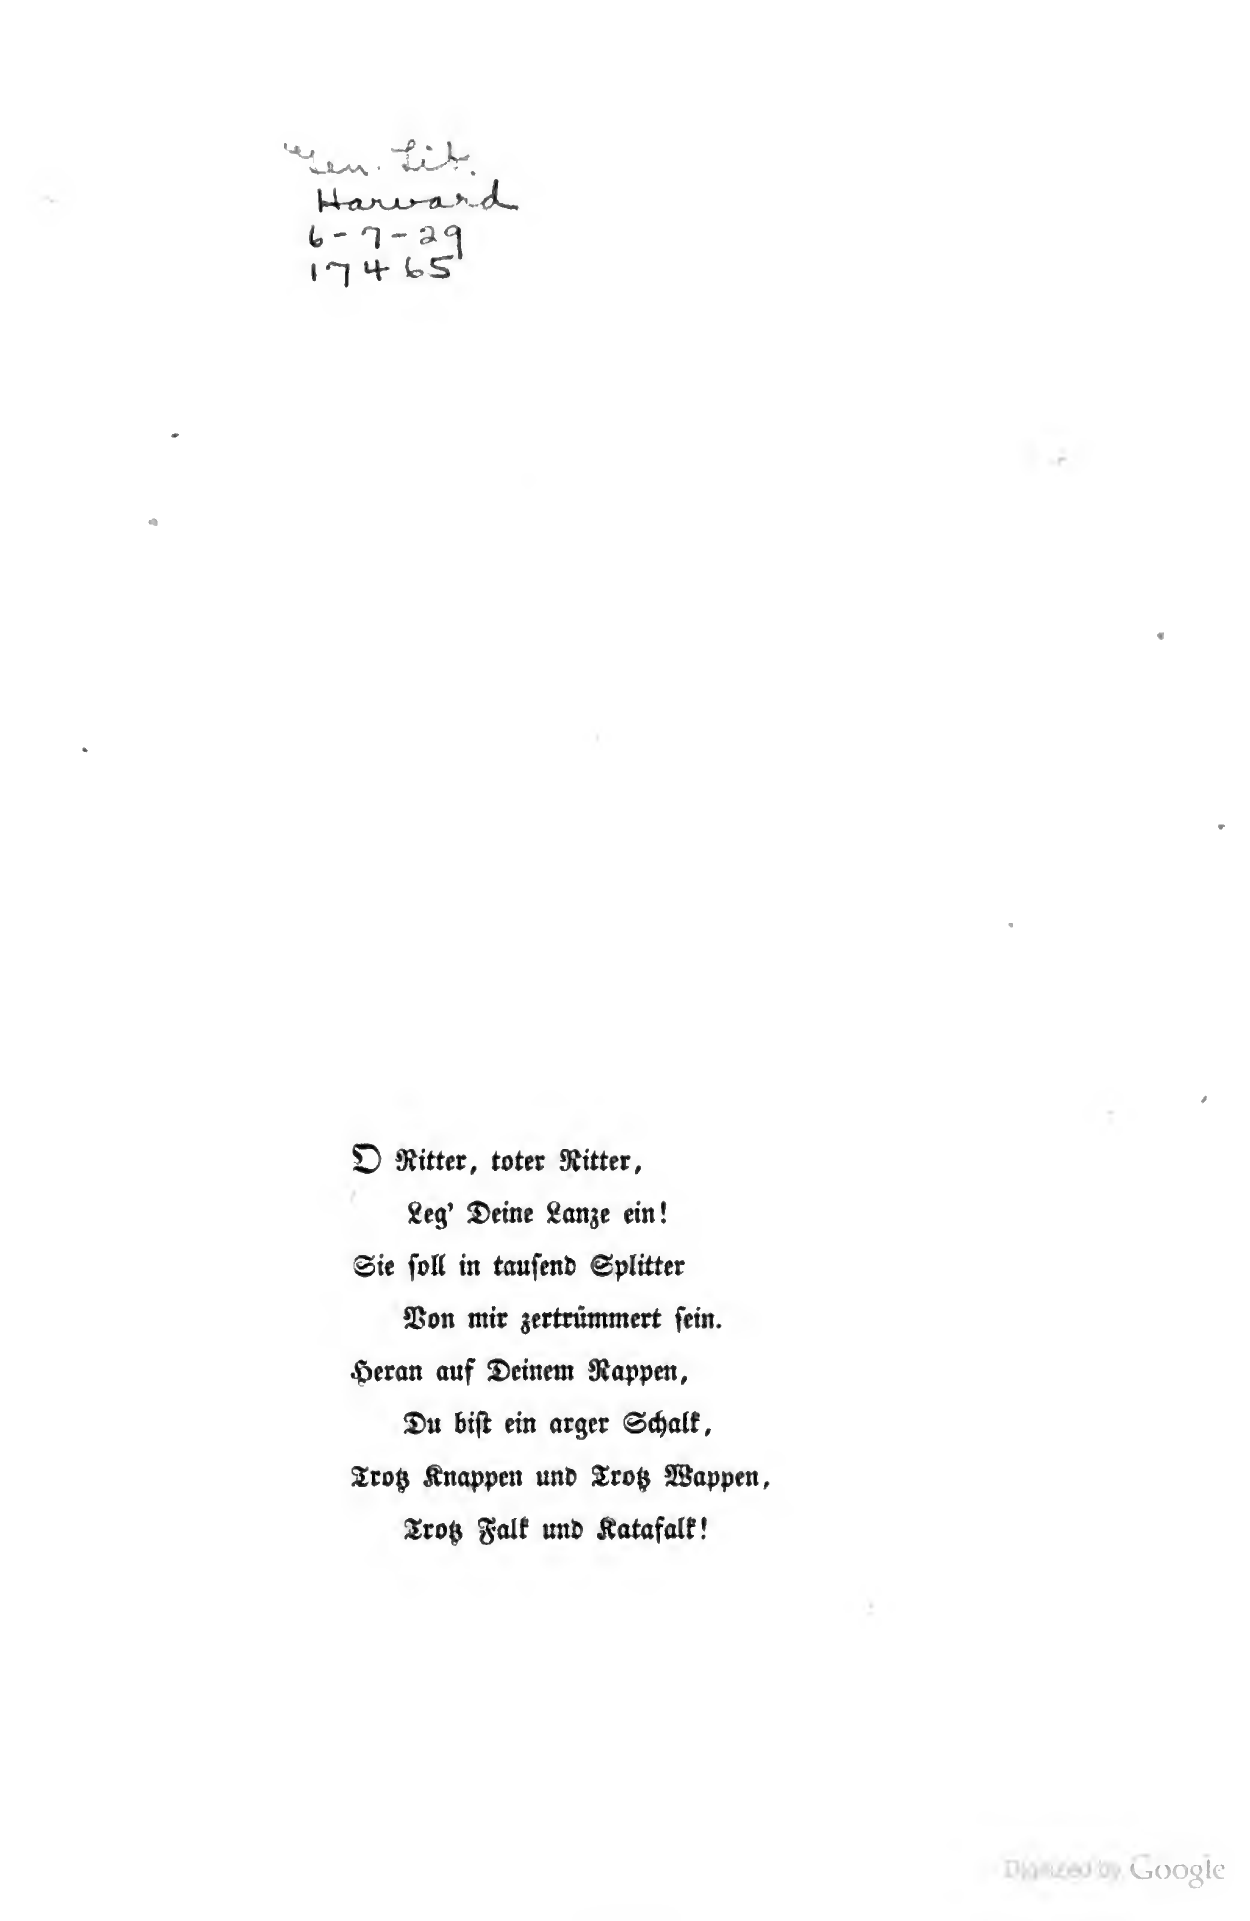 Gen. Lib.
Harvard
6-7-29
17465
O Ritter, toter Ritter,
Leg' Deine Lanze ein!
Sie ſoll in tauſend Splitter
Von mir zertrümmert ſein.
Heran auf Deinem Rappen,
Du biſt ein arger Schalk,
Trotz Knappen und Trotz Wappen,
Trotz Falk und Katafalk!
Digitized by Google